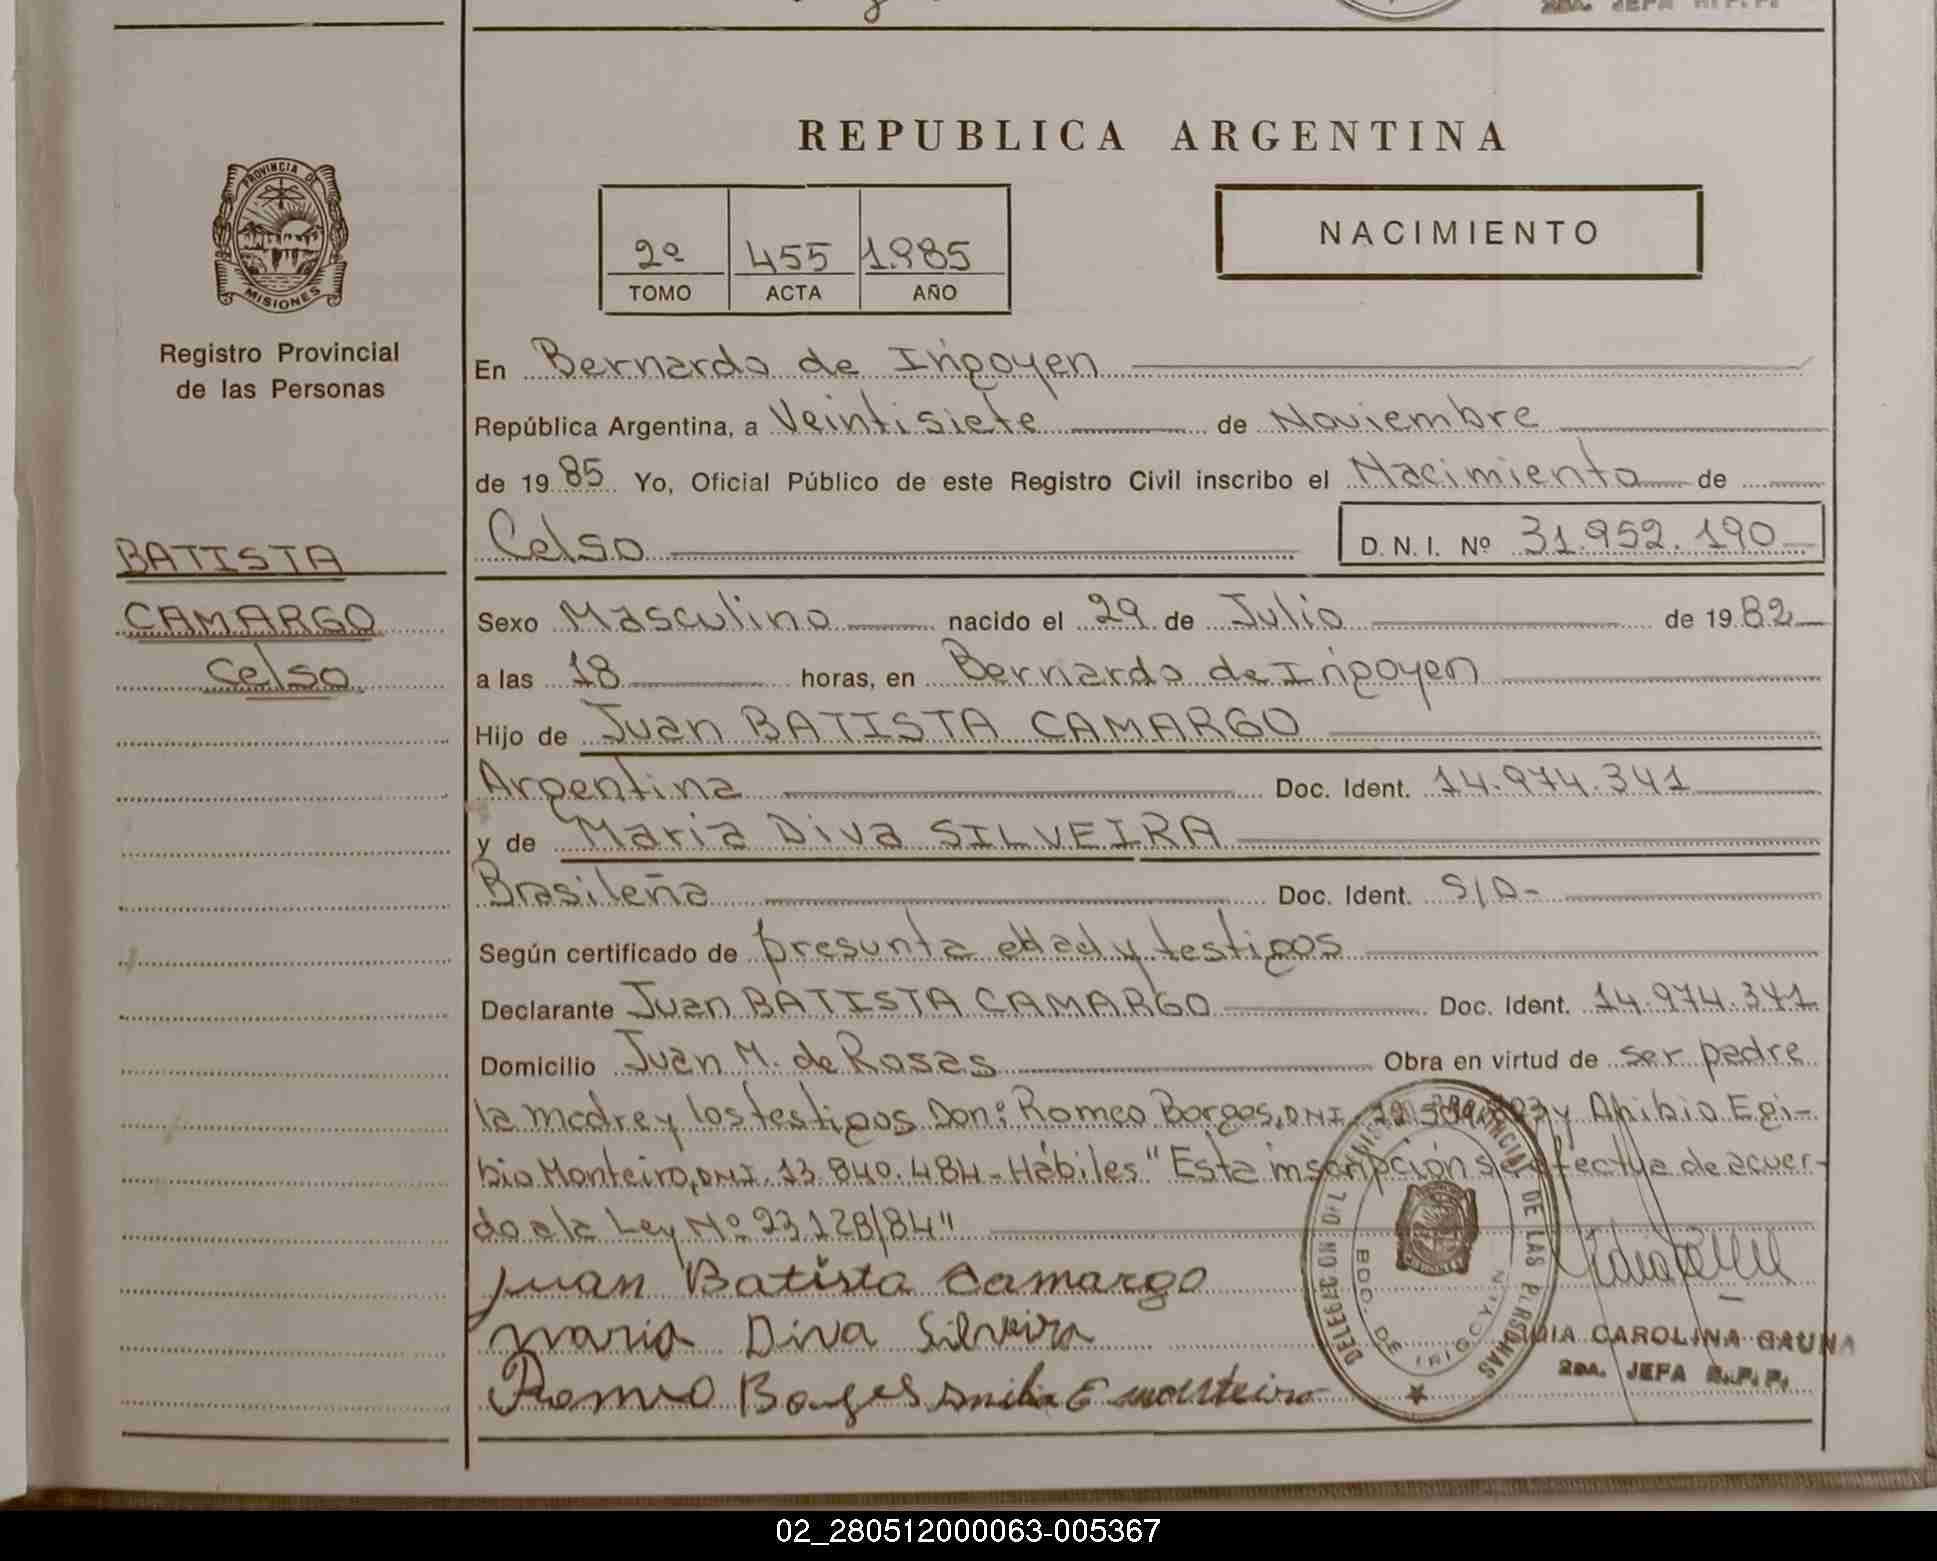 2DA. JEFA R.P.P.
REPUBLICA ARGENTINA
PROVINCIA DE
MISIONES
2º 455 1985
TOMO ACTA AÑO
NACIMIENTO
Registro Provincial
de las Personas
En Bernardo de Irigoyen
República Argentina, a Veintisiete de Noviembre
de 1985 Yo, Oficial Público de este Registro Civil inscribo el Nacimiento de
Celso D. N. I. Nº 31.952.190
BATISTA
CAMARGO
Celso
Sexo Masculino nacido el 29 de Julio de 1982
a las 18 horas, en Bernardo de Irigoyen
Hijo de Juan BATISTA CAMARGO
Argentina Doc. Ident. 14.974.341
y de Maria Diva SILVEIRA
Brasileña Doc. Ident. S/D-
Según certificado de presunta edad y testigos
Declarante Juan BATISTA CAMARGO Doc. Ident. 14.974.341
Domicilio Juan M. de Rosas Obra en virtud de ser padre
la madre y los testigos Don: Romeo Borges, DNI. y Egi-
bio Monteiro, DNI. 13.840.484 - Hábiles "Esta inscripción se efectua de acuer-
do a la Ley Nº 23.128/84"
Juan Batista Camargo
Maria Diva Silveira
Romeo Borges E Monteiro
DELEGACION DEL REGISTRO PROVINCIAL DE LAS PERSONAS
BDO. DE IRIGOYEN
CAROLINA GAUNA
2DA. JEFA R.P.P.
02_280512000063-005367